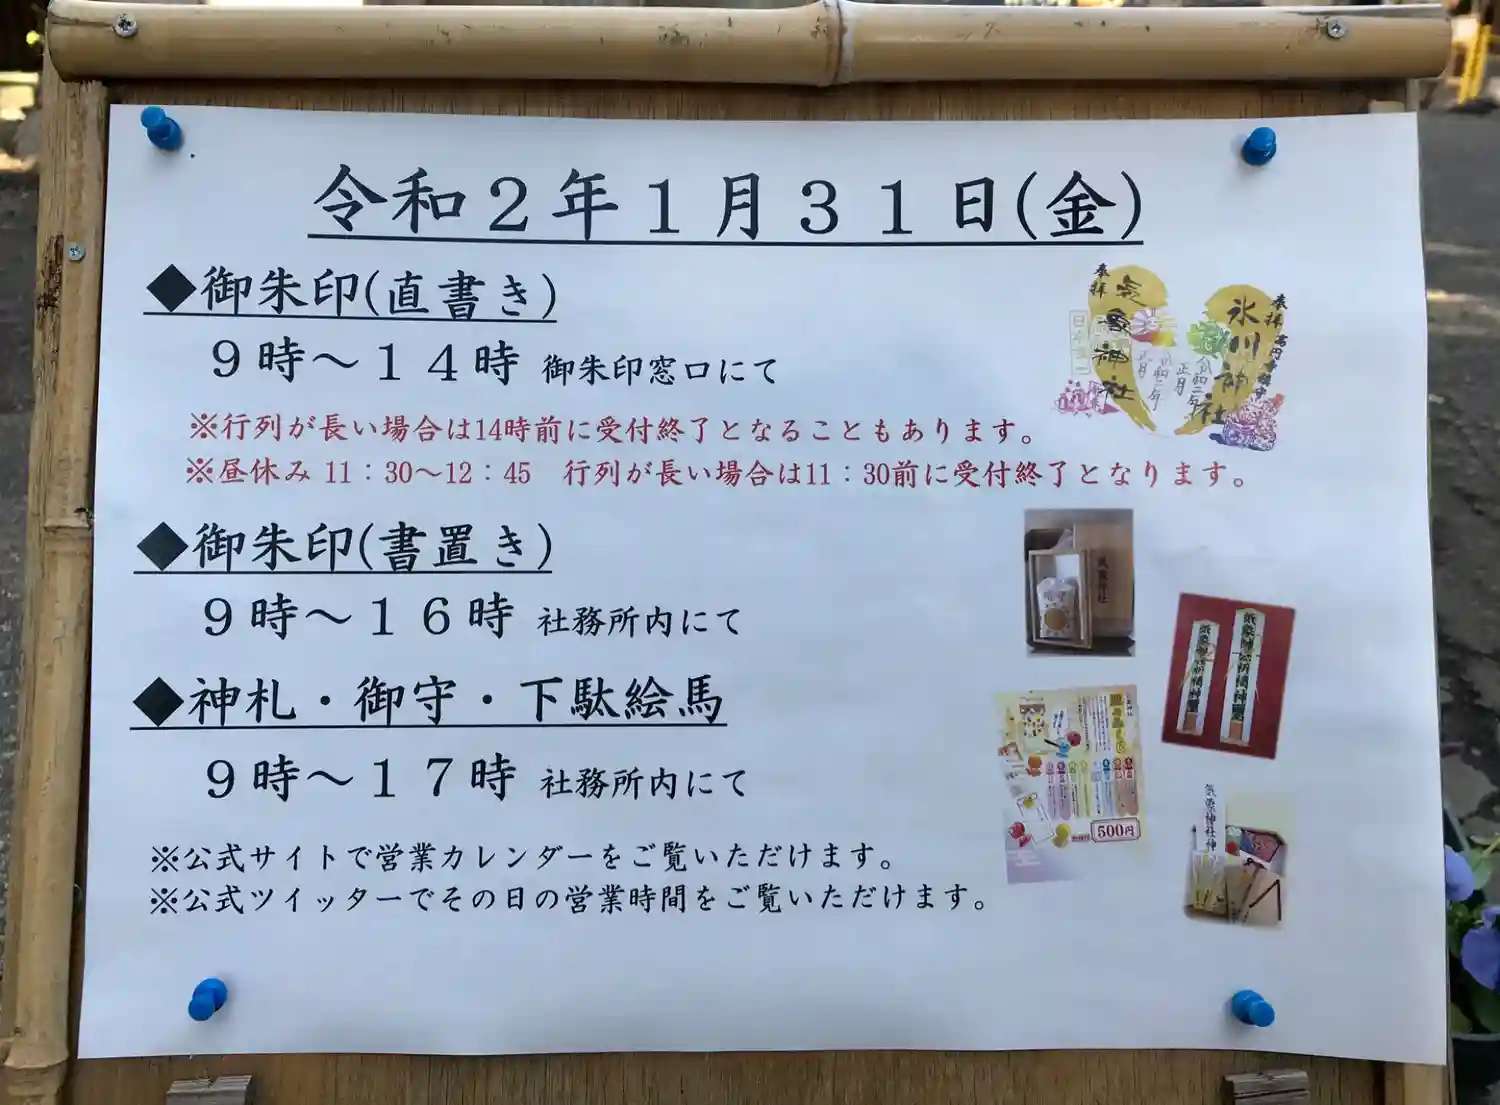 令和２年１月３１日(金)
◆御朱印(直書き)
９時～１４時 御朱印窓口にて
※行列が長い場合は14時前に受付終了となることもあります。
※昼休み 11：30～12：45　行列が長い場合は11：30前に受付終了となります。
◆御朱印(書置き)
９時～１６時 社務所内にて
◆神札・御守・下駄絵馬
９時～１７時 社務所内にて
※公式サイトで営業カレンダーをご覧いただけます。
※公式ツイッターでその日の営業時間をご覧いただけます。
奉拝
氷川神社
奉拝
正月
気象神社
500円